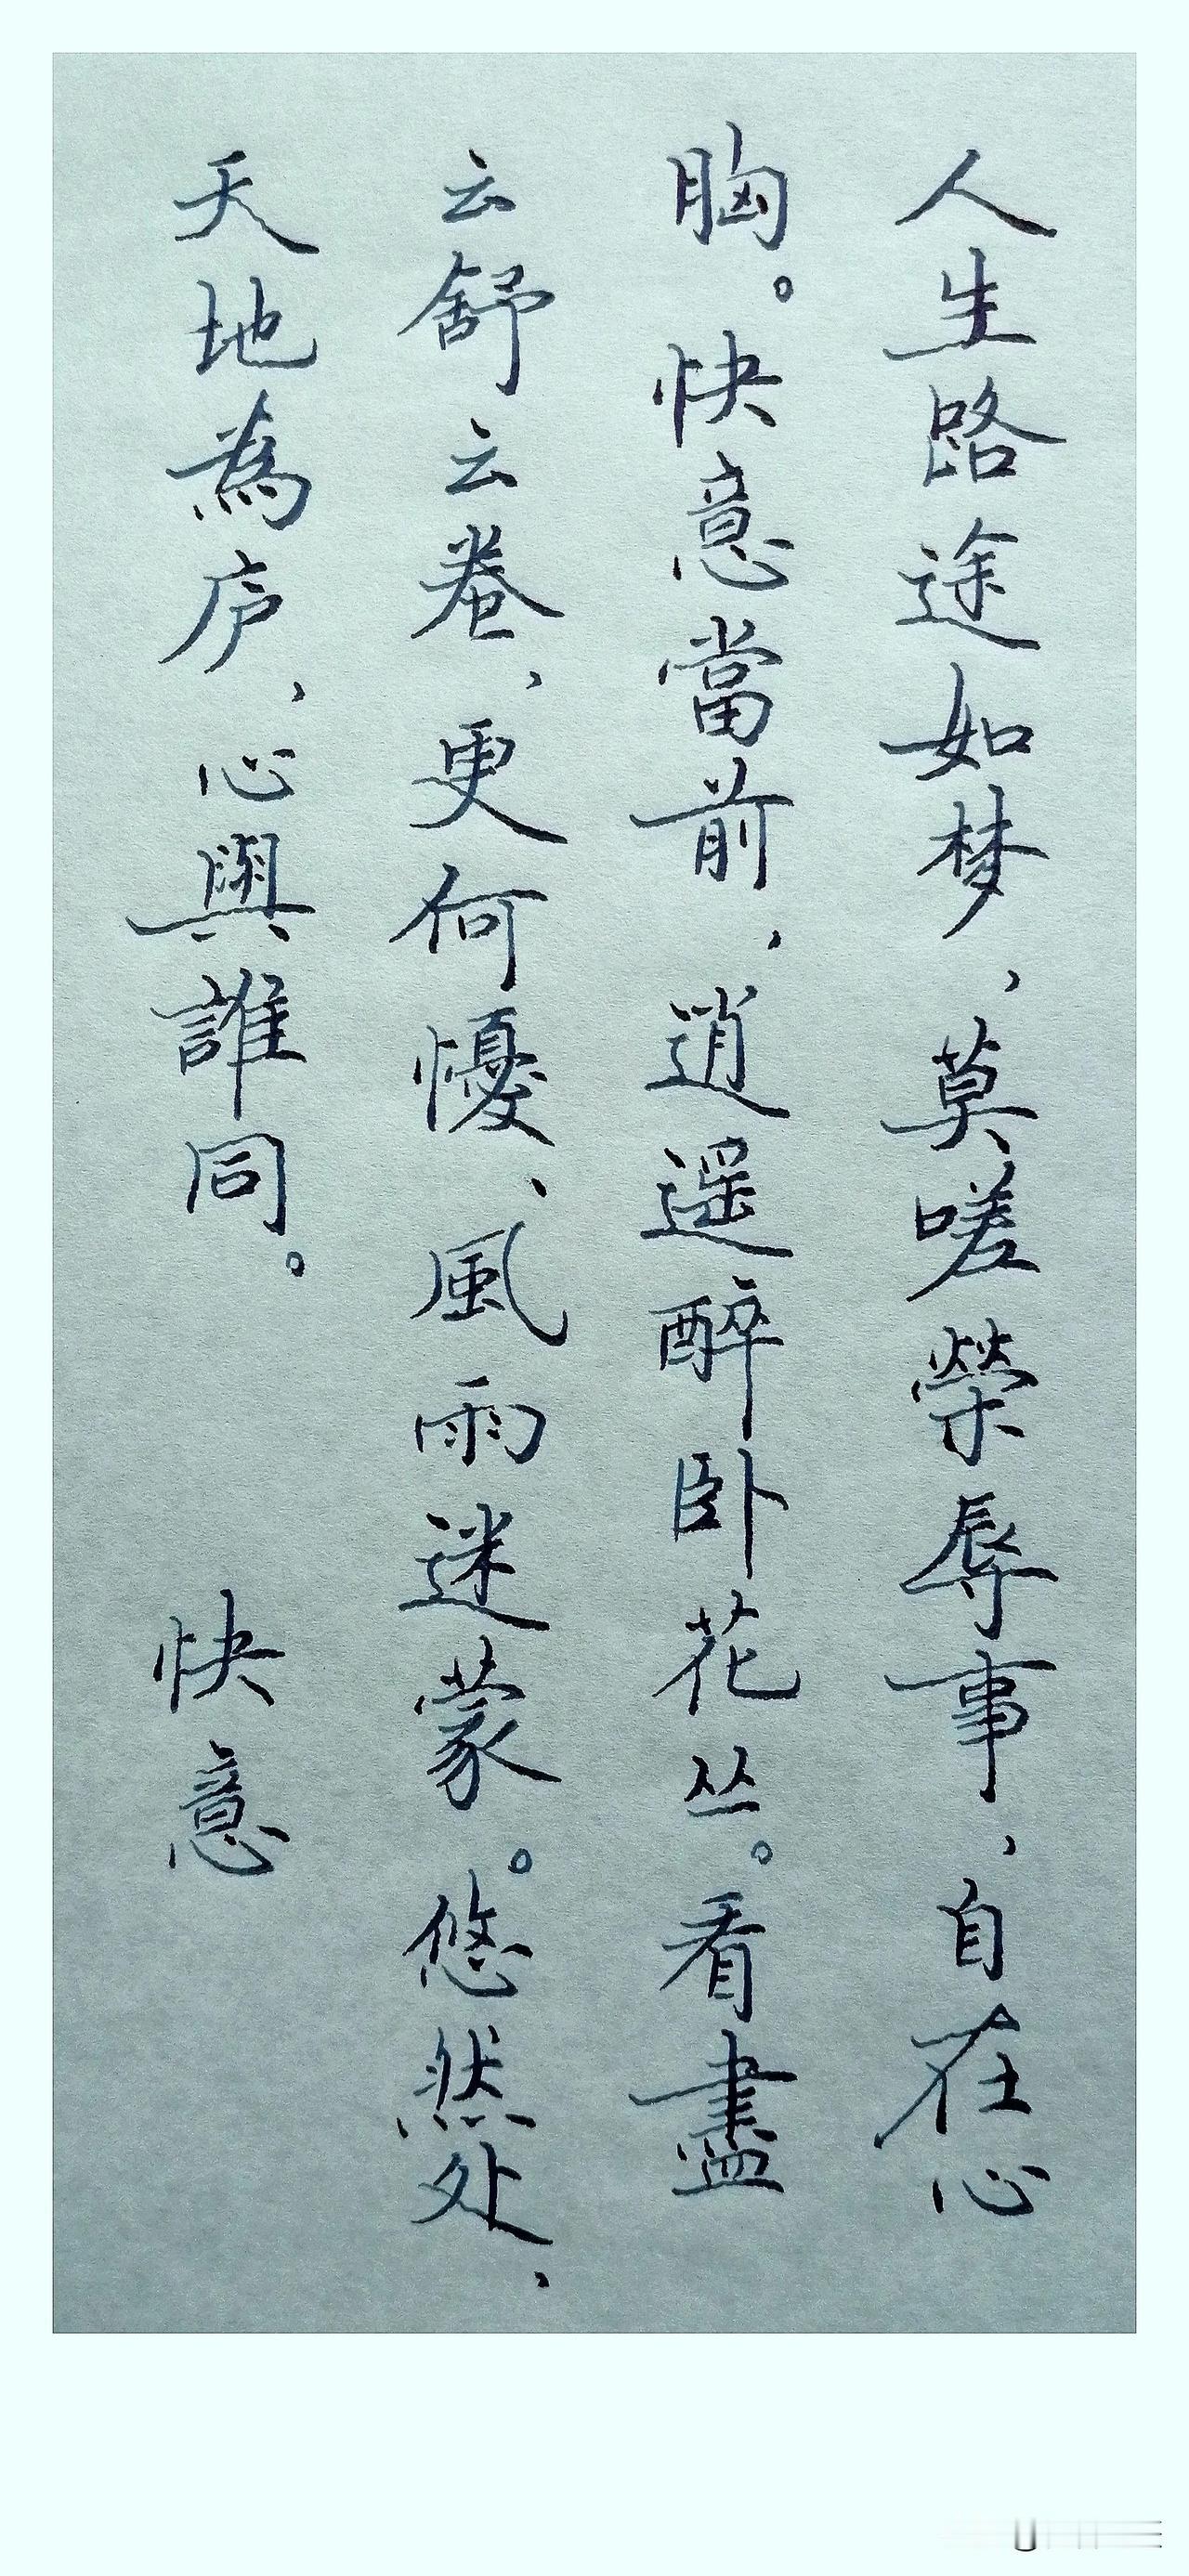 人生路途如梦，莫嗟榮辱事，自在心
胸。快意當前，逍遥醉卧花丛。看盡
云舒云卷，更何憂、風雨迷蒙。悠然处，
天地為庐，心與誰同。
快意